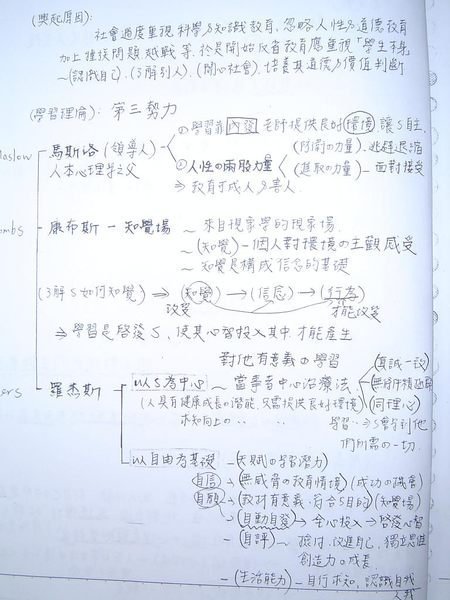 (興起原因):
社會過度重視科學及知識教育,忽略人性及道德教育
加上種族問題、越戰等,於是開始反省教育應重視「學生本身」
~(認識自己)、(了解別人)、(關心社會)、培養其道德及價值判斷
(學習理論): 第三勢力
Maslow 馬斯洛 (領導人)
人本心理學之父
① 學習靠內發 老師提供良好環境 讓S自主
② 人性の兩股力量 (防衛の力量)、逃避退縮
(進取の力量) — 面對接受
⇒ 教育可成人及害人
康布斯 — 知覺場 ~ 來自現象學的現象場
~ (知覺) — 個人對環境の主觀感受
~ 知覺是構成信念的基礎
(了解S如何知覺) ⇒ (知覺) → (信念) → (行為)
改變 才能改變
⇒ 學習是啓發S,使其心智投入其中,才能產生
對他有意義の學習
羅杰斯
以S為中心 ~ 當事者中心治療法 真誠一致
(人具有健康成長の潛能,只需提供良好環境) 無條件積極
求知向上の 同理心
學習 ⇒ S會找到他
們所需の一切
以自由為基礎 — 天賦の學習潛力
自信 ~ 無威脅の教育情境 (成功の機會)
自願 ~ 教材有意義、符合S目的 (知覺場)
(自動自發) → 全心投入 → 啓發心智
自評 ~ 檢討、改進自己,獨立思維
創造力の成長
— (生活能力) — 自行求知,認識自我